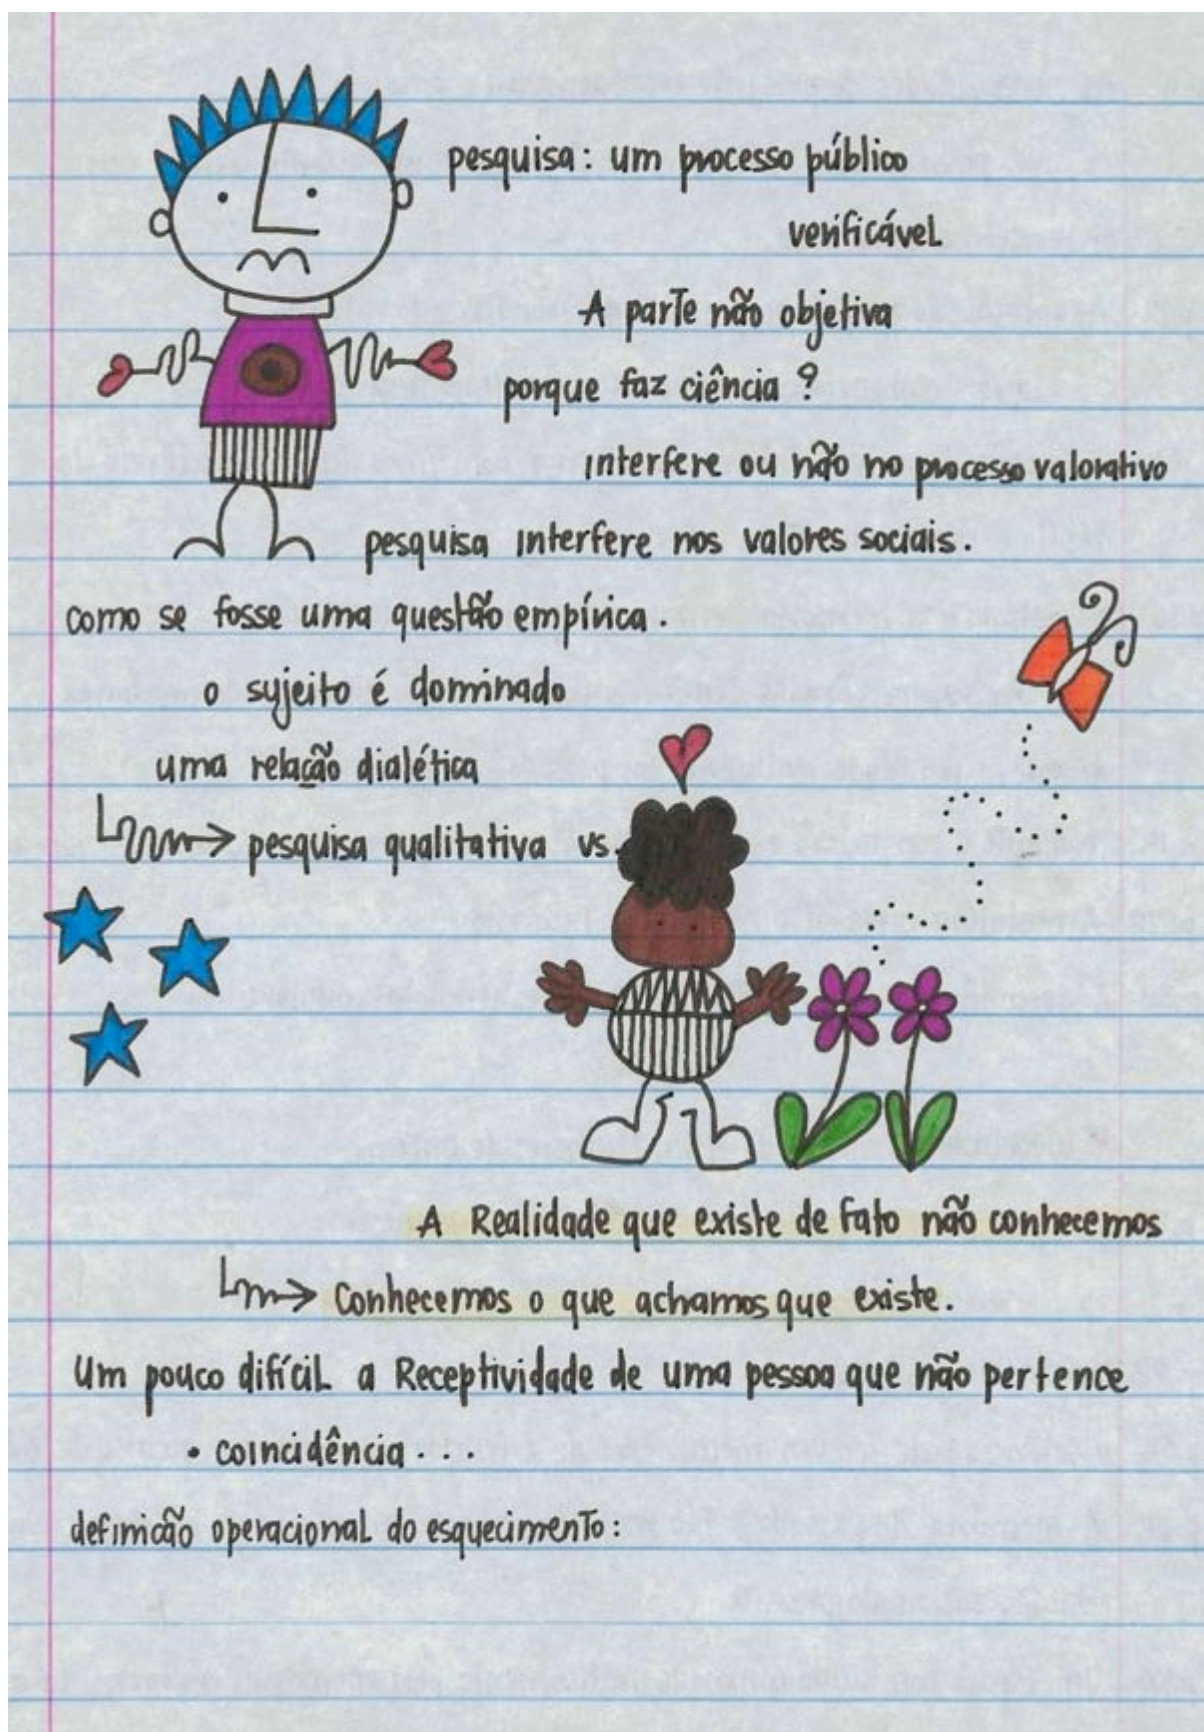 pesquisa: um processo público
verificável
A parte não objetiva
porque faz ciência?
interfere ou não no processo valorativo
pesquisa interfere nos valores sociais.
como se fosse uma questão empírica.
o sujeito é dominado
uma relação dialética
pesquisa qualitativa vs.
A Realidade que existe de fato não conhecemos
Conhecemos o que achamos que existe.
Um pouco difícil a Receptividade de uma pessoa que não pertence
• coincidência...
definicão operacional do esquecimento: